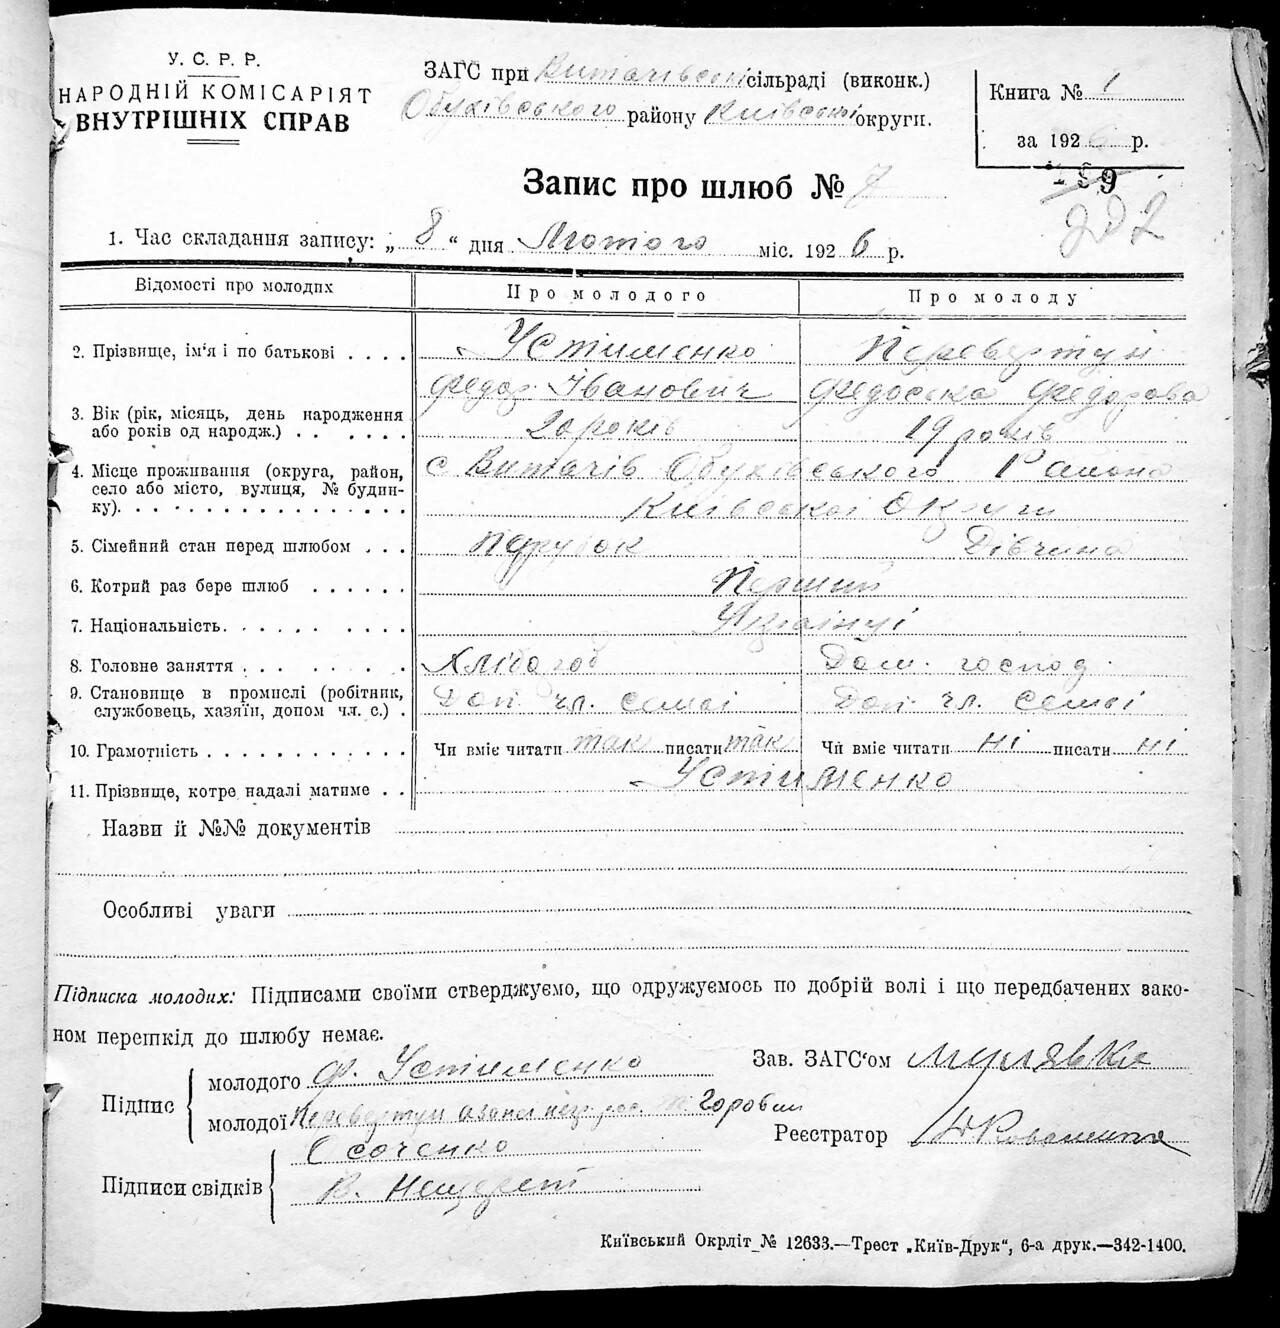 У. С. Р. Р.
НАРОДНІЙ КОМІСАРІЯТ
ВНУТРІШНІХ СПРАВ
ЗАГС при Витачівській сільраді (виконк.)
Обухівського району Київської округи.
Книга № 1
за 1926 р.
199
202
Запис про шлюб № 7
1. Час складання запису: „ 8 “ дня Лютого міс. 1926 р.
Відомості про молодих Про молодого Про молоду
2. Прізвище, ім'я і по батькові . . . . Устименко Перевертун
Федор Іванович Федоська Федорова
3. Вік (рік, місяць, день народження
або років од народж.) . . . . . . . 20 років 19 років
4. Місце проживання (округа, район,
село або місто, вулиця, № будин-
ку). . . . . . . . . . . . . . . . . .
с Витачів Обухівського Района
Київської Округи
5. Сімейний стан перед шлюбом . . . Парубок Дівчина
6. Котрий раз бере шлюб . . . . . . Перший
7. Національність. . . . . . . . . . Українці
8. Головне заняття . . . . . . . . . Хлібороб Дом. господ.
9. Становище в промислі (робітник,
службовець, хазяїн, допом чл. с.) . Доп. чл. семьі Доп. чл. семьі
10. Грамотність . . . . . . . . . . . . Чи вміє читати так писати так Чи вміє читати ні писати ні
11. Прізвище, котре надалі матиме . . Устименко
Назви й №№ документів
Особливі уваги
Підписка молодих: Підписами своїми стверджуємо, що одружуємось по добрій волі і що передбачених зако-
ном перешкід до шлюбу немає.
Підпис
молодого Ф. Устименко
молодої Перевертун
Зав. ЗАГС'ом Мулявка
Реєстратор
Підписи свідків
Осоченко
В. Нещерет
Київський Окрліт № 12633.—Трест „Київ-Друк“, 6-а друк.—342-1400.